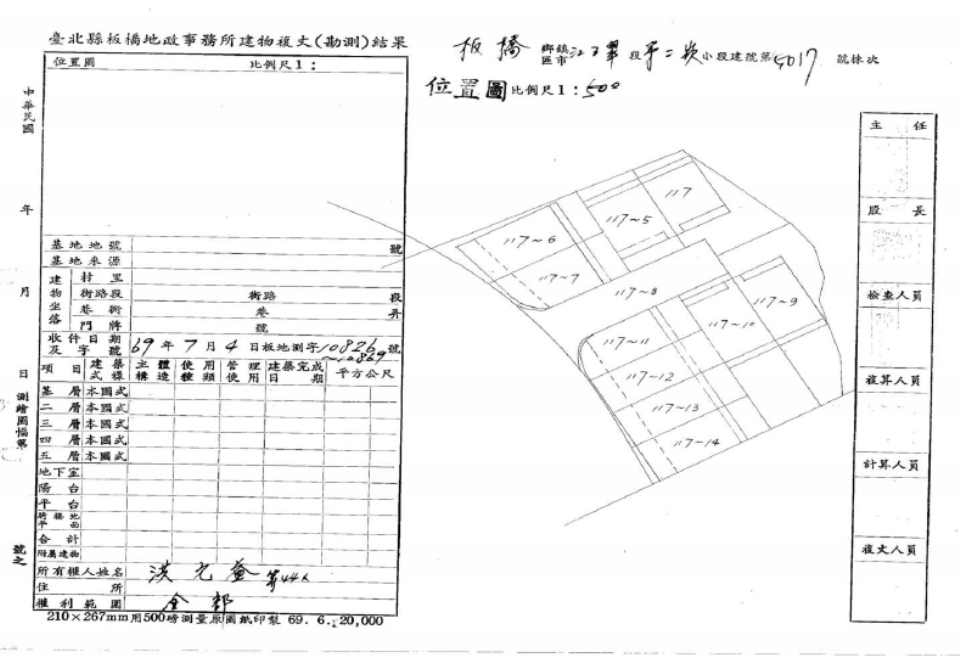 臺北縣板橋地政事務所建物複丈(勘測)結果
位置圖 比例尺1:
基地地號 號
基地來源
建物坐落
村里
街路段 街路 段
巷衖 巷 弄
門牌 號
收件日期及字號 69年7月4日板地測字10826號
~10869
項目 建築式樣 主體構造 使用種類 管理使用 建築完成日期 平方公尺
基層 本國式
二層 本國式
三層 本國式
四層 本國式
五層 本國式
地下室
陽台
平台
騎樓地平面
合計
附屬建物
所有權人姓名 洪 等44人
住所
權利範圍 全部
210×267mm用500磅測量原圖紙印製 69.6.20,000
中華民國 年 月 日測繪圖幅第 號之
板橋 鄉鎮區市 江子翠段第二崁小段建號第5017 號棟次
位置圖比例尺1:500
117
117~5
117~6
117~7
117~8
117~9
117~10
117~11
117~12
117~13
117~14
主任
股長
檢查人員
複算人員
計算人員
複丈人員